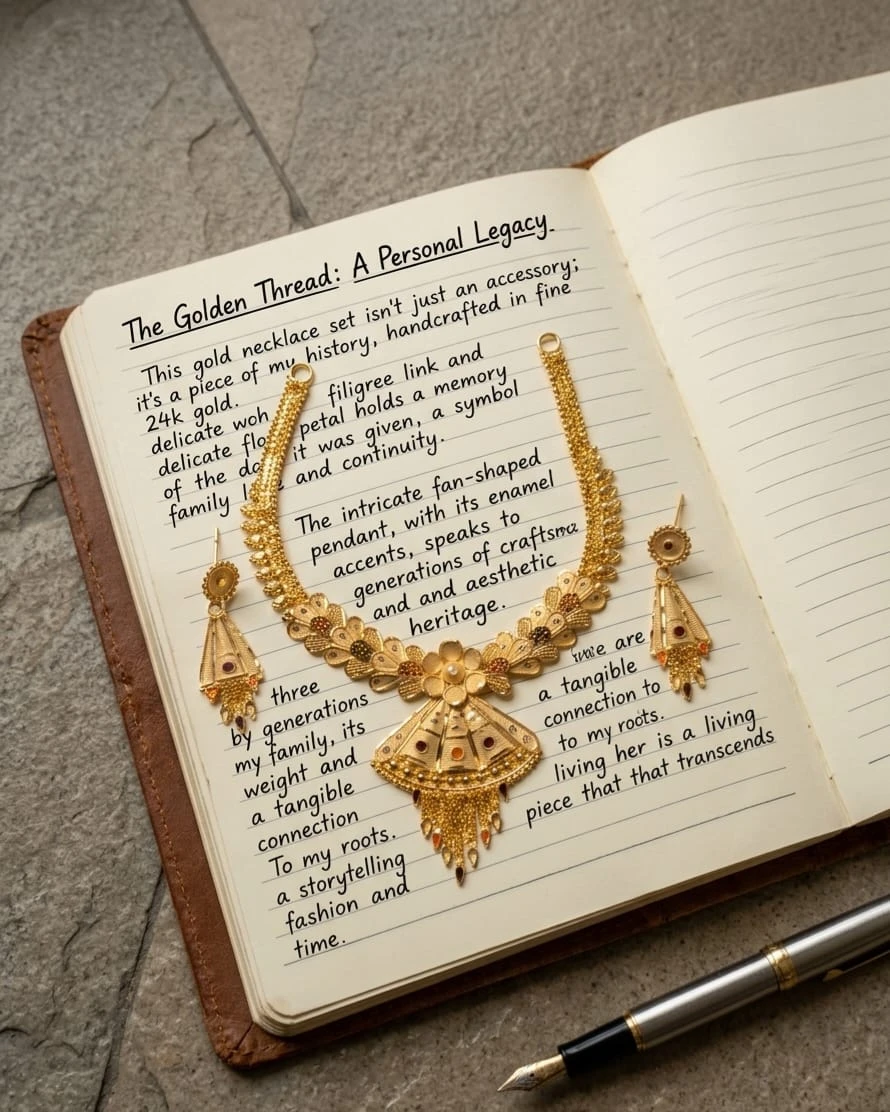 The Golden Thread: A Personal Legacy.
This gold necklace set isn't just an accessory;
it's a piece of my history, handcrafted in fine
24k gold.
delicate woh filigree link and
delicate flo petal holds a memory
of the da it was given, a symbol
family l e and continuity.
The intricate fan-shaped
pendant, with its enamel
accents, speaks to
generations of craftsma
and and aesthetic
heritage.
three
by generations
my family, its
weight and
a tangible
connection
To my roots.
a storytelling
fashion and
time.
are
a tangible
connection to
to my roots.
living her is a living
piece that that transcends